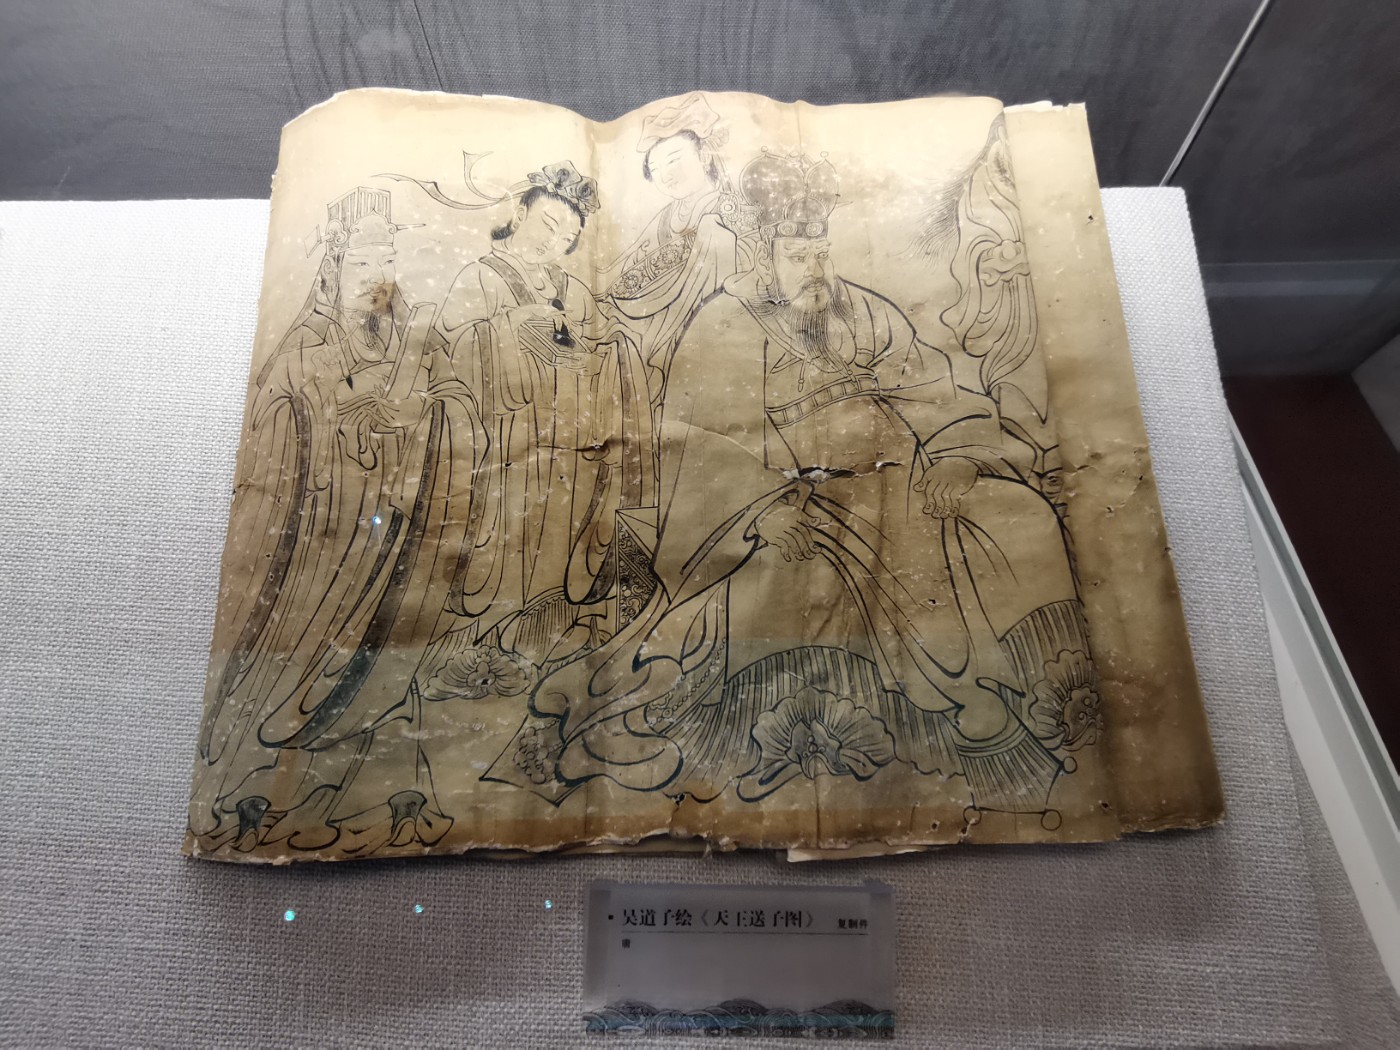 ▪ 吴道子绘《天王送子图》 复制件
唐